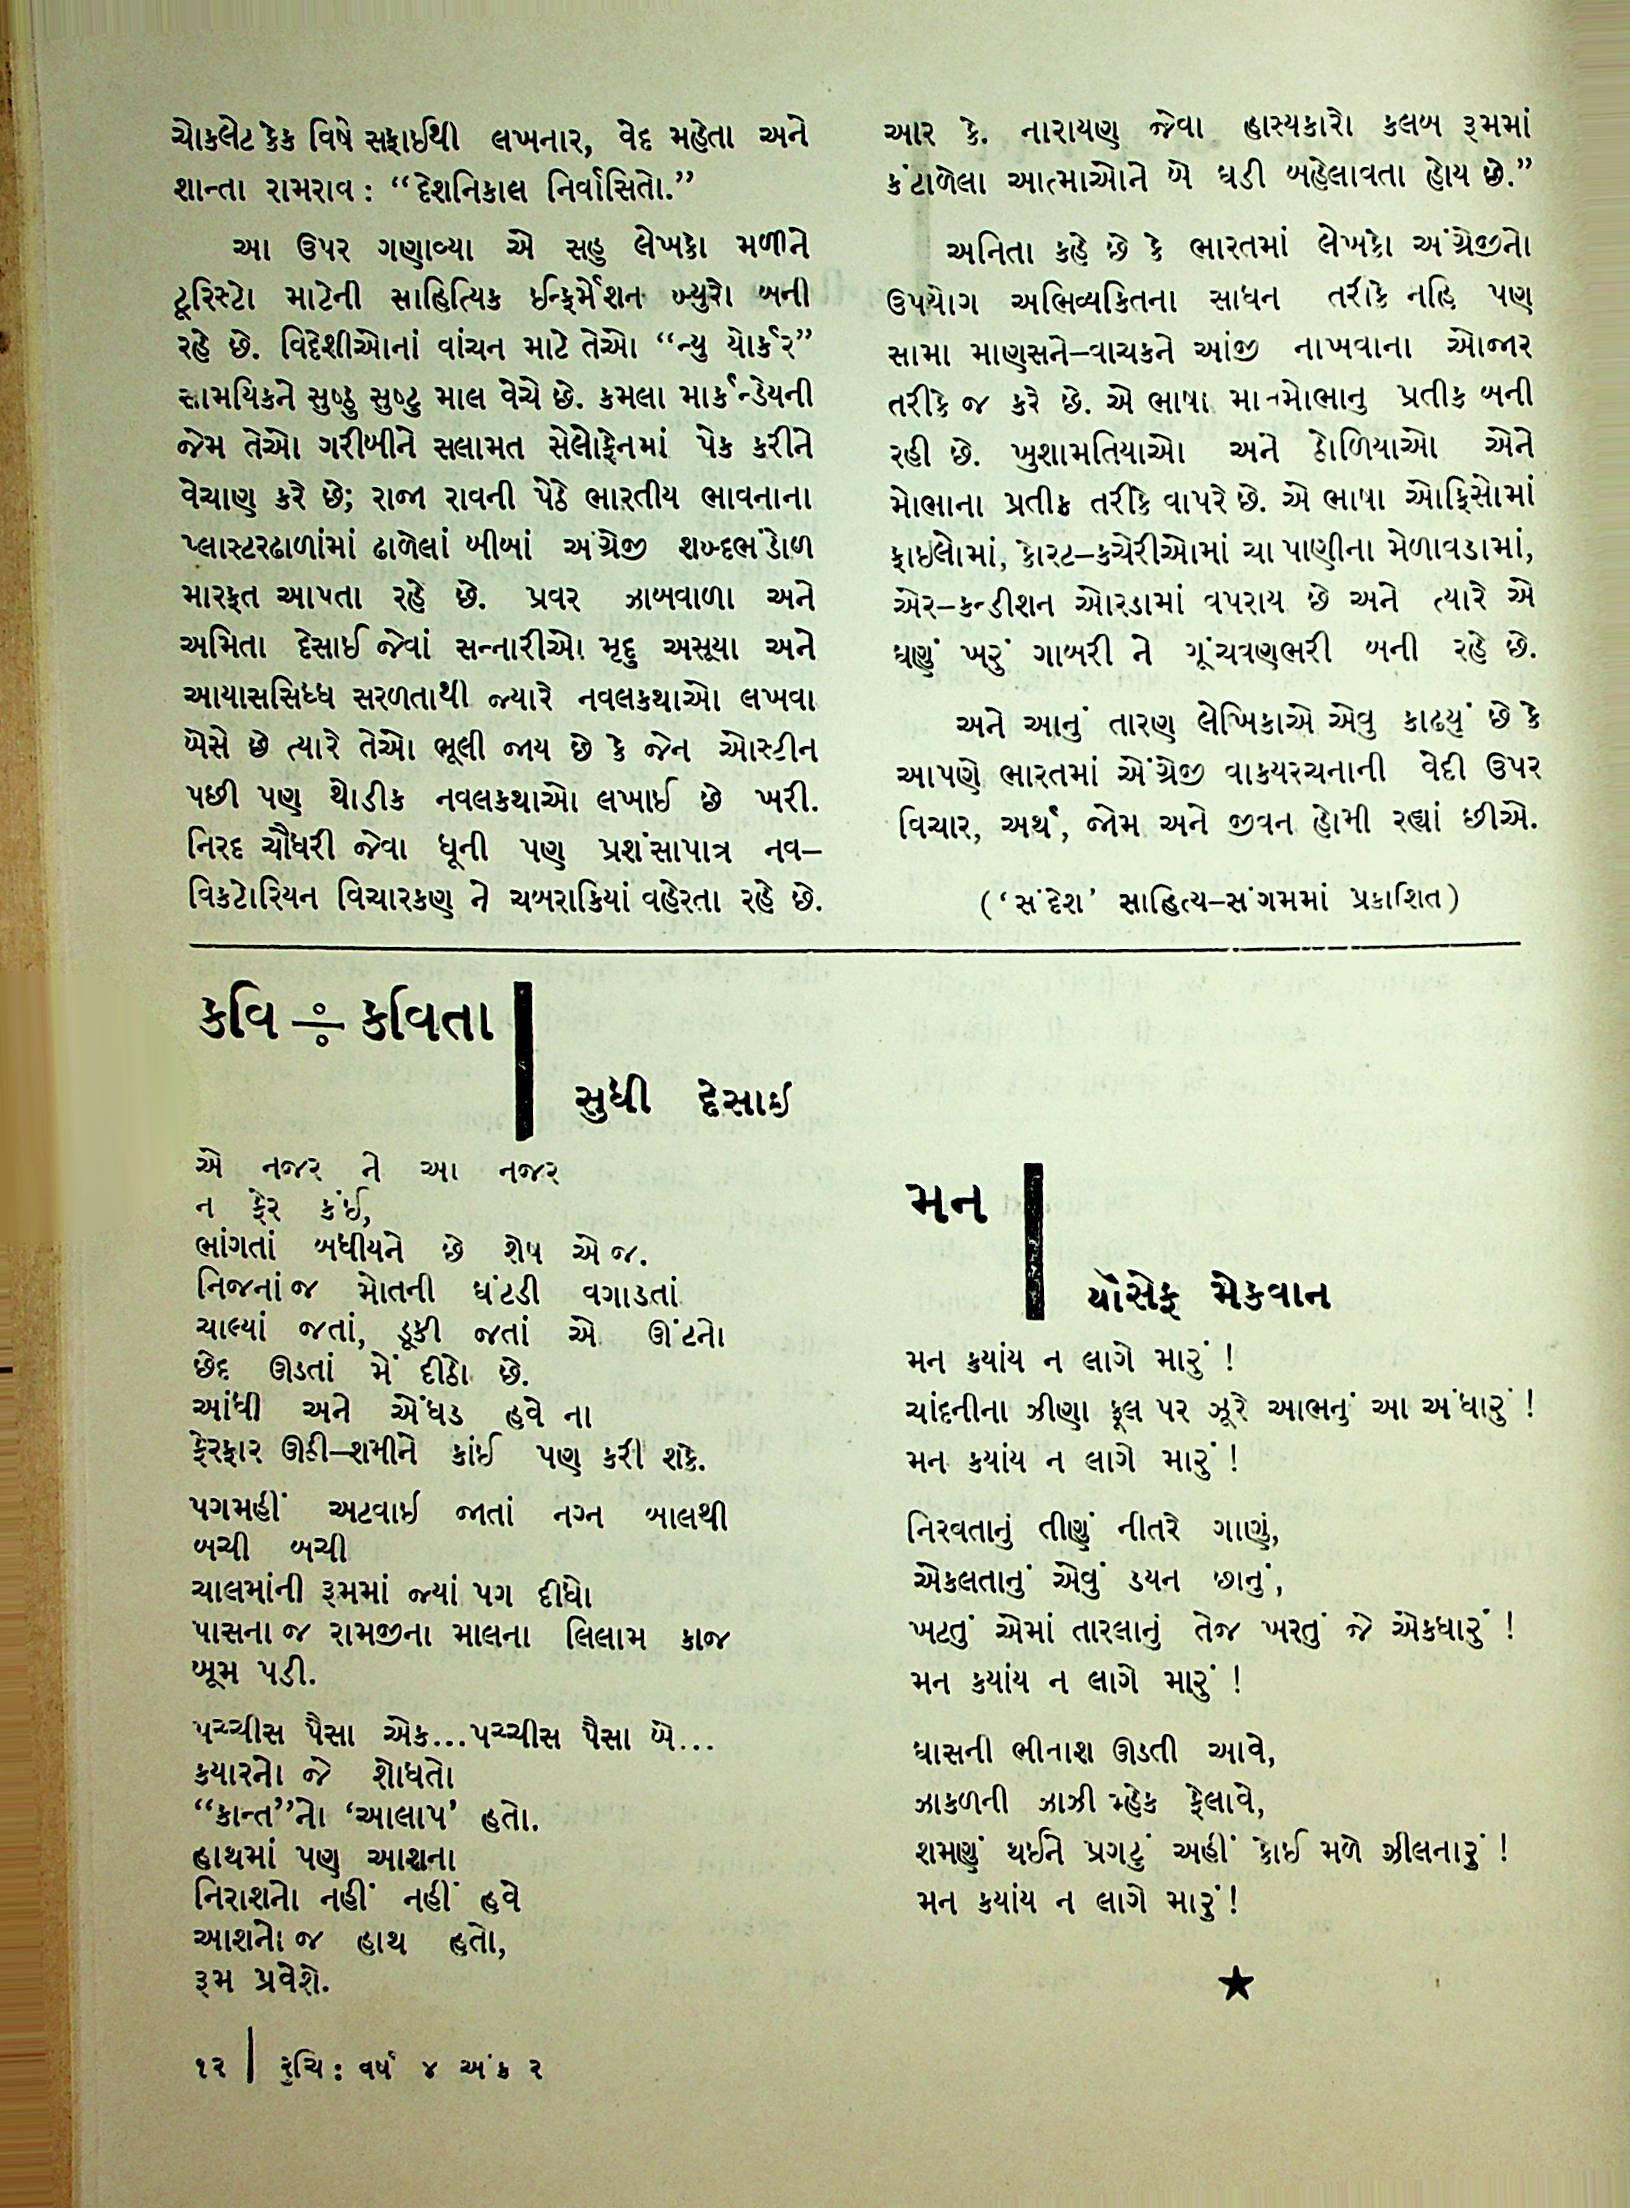 ચોકલેટ કેક વિષે સફાઈથી લખનાર, વેદ મહેતા અને
શાન્તા રામરાવ : “દેશનિકાલ નિર્વાસિતો.”
આ ઉપર ગણાવ્યા એ સહુ લેખકો મળીને
ટૂરિસ્ટો માટેની સાહિત્યિક ઈન્ફર્મેશન બ્યુરો બની
રહે છે. વિદેશીઓનાં વાંચન માટે તેઓ “ન્યુ યોર્કર”
સામયિકને સુષ્ઠુ સુષ્ટુ માલ વેચે છે. કમલા માર્કન્ડેયની
જેમ તેઓ ગરીબીને સલામત સેલોફેનમાં પેક કરીને
વેચાણ કરે છે; રાજા રાવની પેઠે ભારતીય ભાવનાના
પ્લાસ્ટરઢાળાંમાં ઢાળેલાં બીબાં અંગ્રેજી શબ્દભંડોળ
મારફત આપતા રહે છે. પ્રવર ઝાબવાળા અને
અમિતા દેસાઈ જેવાં સન્નારીઓ મૃદુ અસૂયા અને
આયાસસિધ્ધ સરળતાથી જ્યારે નવલકથાઓ લખવા
બેસે છે ત્યારે તેઓ ભૂલી જાય છે કે જેન ઓસ્ટીન
પછી પણ થોડીક નવલકથાઓ લખાઈ છે ખરી.
નિરદ ચૌધરી જેવા ધૂની પણ પ્રશંસાપાત્ર નવ–
વિકટોરિયન વિચારકણ ને ચબરાકિયાં વહેરતા રહે છે.
આર કે. નારાયણ જેવા હાસ્યકારો કલબ રૂમમાં
કંટાળેલા આત્માઓને બે ઘડી બહેલાવતા હોય છે.”
અનિતા કહે છે કે ભારતમાં લેખકો અંગ્રેજીનો
ઉપયોગ અભિવ્યકિતના સાધન તરીકે નહિ પણ
સામા માણસને–વાચકને આંજી નાખવાના ઓજાર
તરીકે જ કરે છે. એ ભાષા માત્રમોભાનુ પ્રતીક બની
રહી છે. ખુશામતિયાઓ અને ઠોળિયાઓ એને
મોભાના પ્રતીક તરીકે વાપરે છે. એ ભાષા ઓફિસોમાં
ફાઇલોમાં, કોરટ–કચેરીઓમાં ચા પાણીના મેળાવડામાં,
એર–કન્ડીશન ઓરડામાં વપરાય છે અને ત્યારે એ
ઘણું ખરું ગાબરી ને ગૂંચવણભરી બની રહે છે.
અને આનું તારણ લેખિકાએ એવુ કાઢયું છે કે
આપણે ભારતમાં અેંગ્રેજી વાકયરચનાની વેદી ઉપર
વિચાર, અર્થ, જોમ અને જીવન હોમી રહ્યાં છીએ.
(‘સંદેશ’ સાહિત્ય–સંગમમાં પ્રકાશિત)
કવિ ÷ કવિતા
સુધી દેસાઇ
એ નજર ને આ નજર
ન ફેર કંઈ,
ભાંગતાં બધીયને છે શેષ એ જ.
નિજનાં જ મોતની ઘંટડી વગાડતાં
ચાલ્યાં જતાં, ડૂકી જતાં એ ઊંટનો
છેદ ઊડતાં મેં દીઠો છે.
આંધી અને એંધડ હવે ના
ફેરફાર ઊઠી–શમીને કાંઈ પણ કરી શકે.
પગમહીં અટવાઈ જાતાં નગ્ન બાલથી
બચી બચી
ચાલમાંની રૂમમાં જ્યાં પગ દીધો
પાસના જ રામજીના માલના લિલામ કાજ
બૂમ પડી.
પચ્ચીસ પૈસા એક...પચ્ચીસ પૈસા બે...
કયારનો જે શોધતો
“કાન્ત”નો ‘આલાપ’ હતો.
હાથમાં પણ આશના
નિરાશનો નહીં નહીં હવે
આશનો જ હાથ હતો,
રૂમ પ્રવેશે.
મન
યૉસેફ મેકવાન
મન કયાંય ન લાગે મારું !
ચાંદનીના ઝીણા ફૂલ પર ઝૂરે આભનું આ અંધારું !
મન કયાંય ન લાગે મારું !
નિરવતાનું તીણું નીતરે ગાણું,
એકલતાનું એવું ડયન છાનું,
ખટતું એમાં તારલાનું તેજ ખરતું જે એકધારું !
મન કયાંય ન લાગે મારું !
ઘાસની ભીનાશ ઊડતી આવે,
ઝાકળની ઝાઝી મ્હેક ફેલાવે,
શમણું થઈને પ્રગટું અહીં કોઈ મળે ઝીલનારું !
મન કયાંય ન લાગે મારું !
૧૨ | રુચિ : વર્ષ ૪ અંક ૨